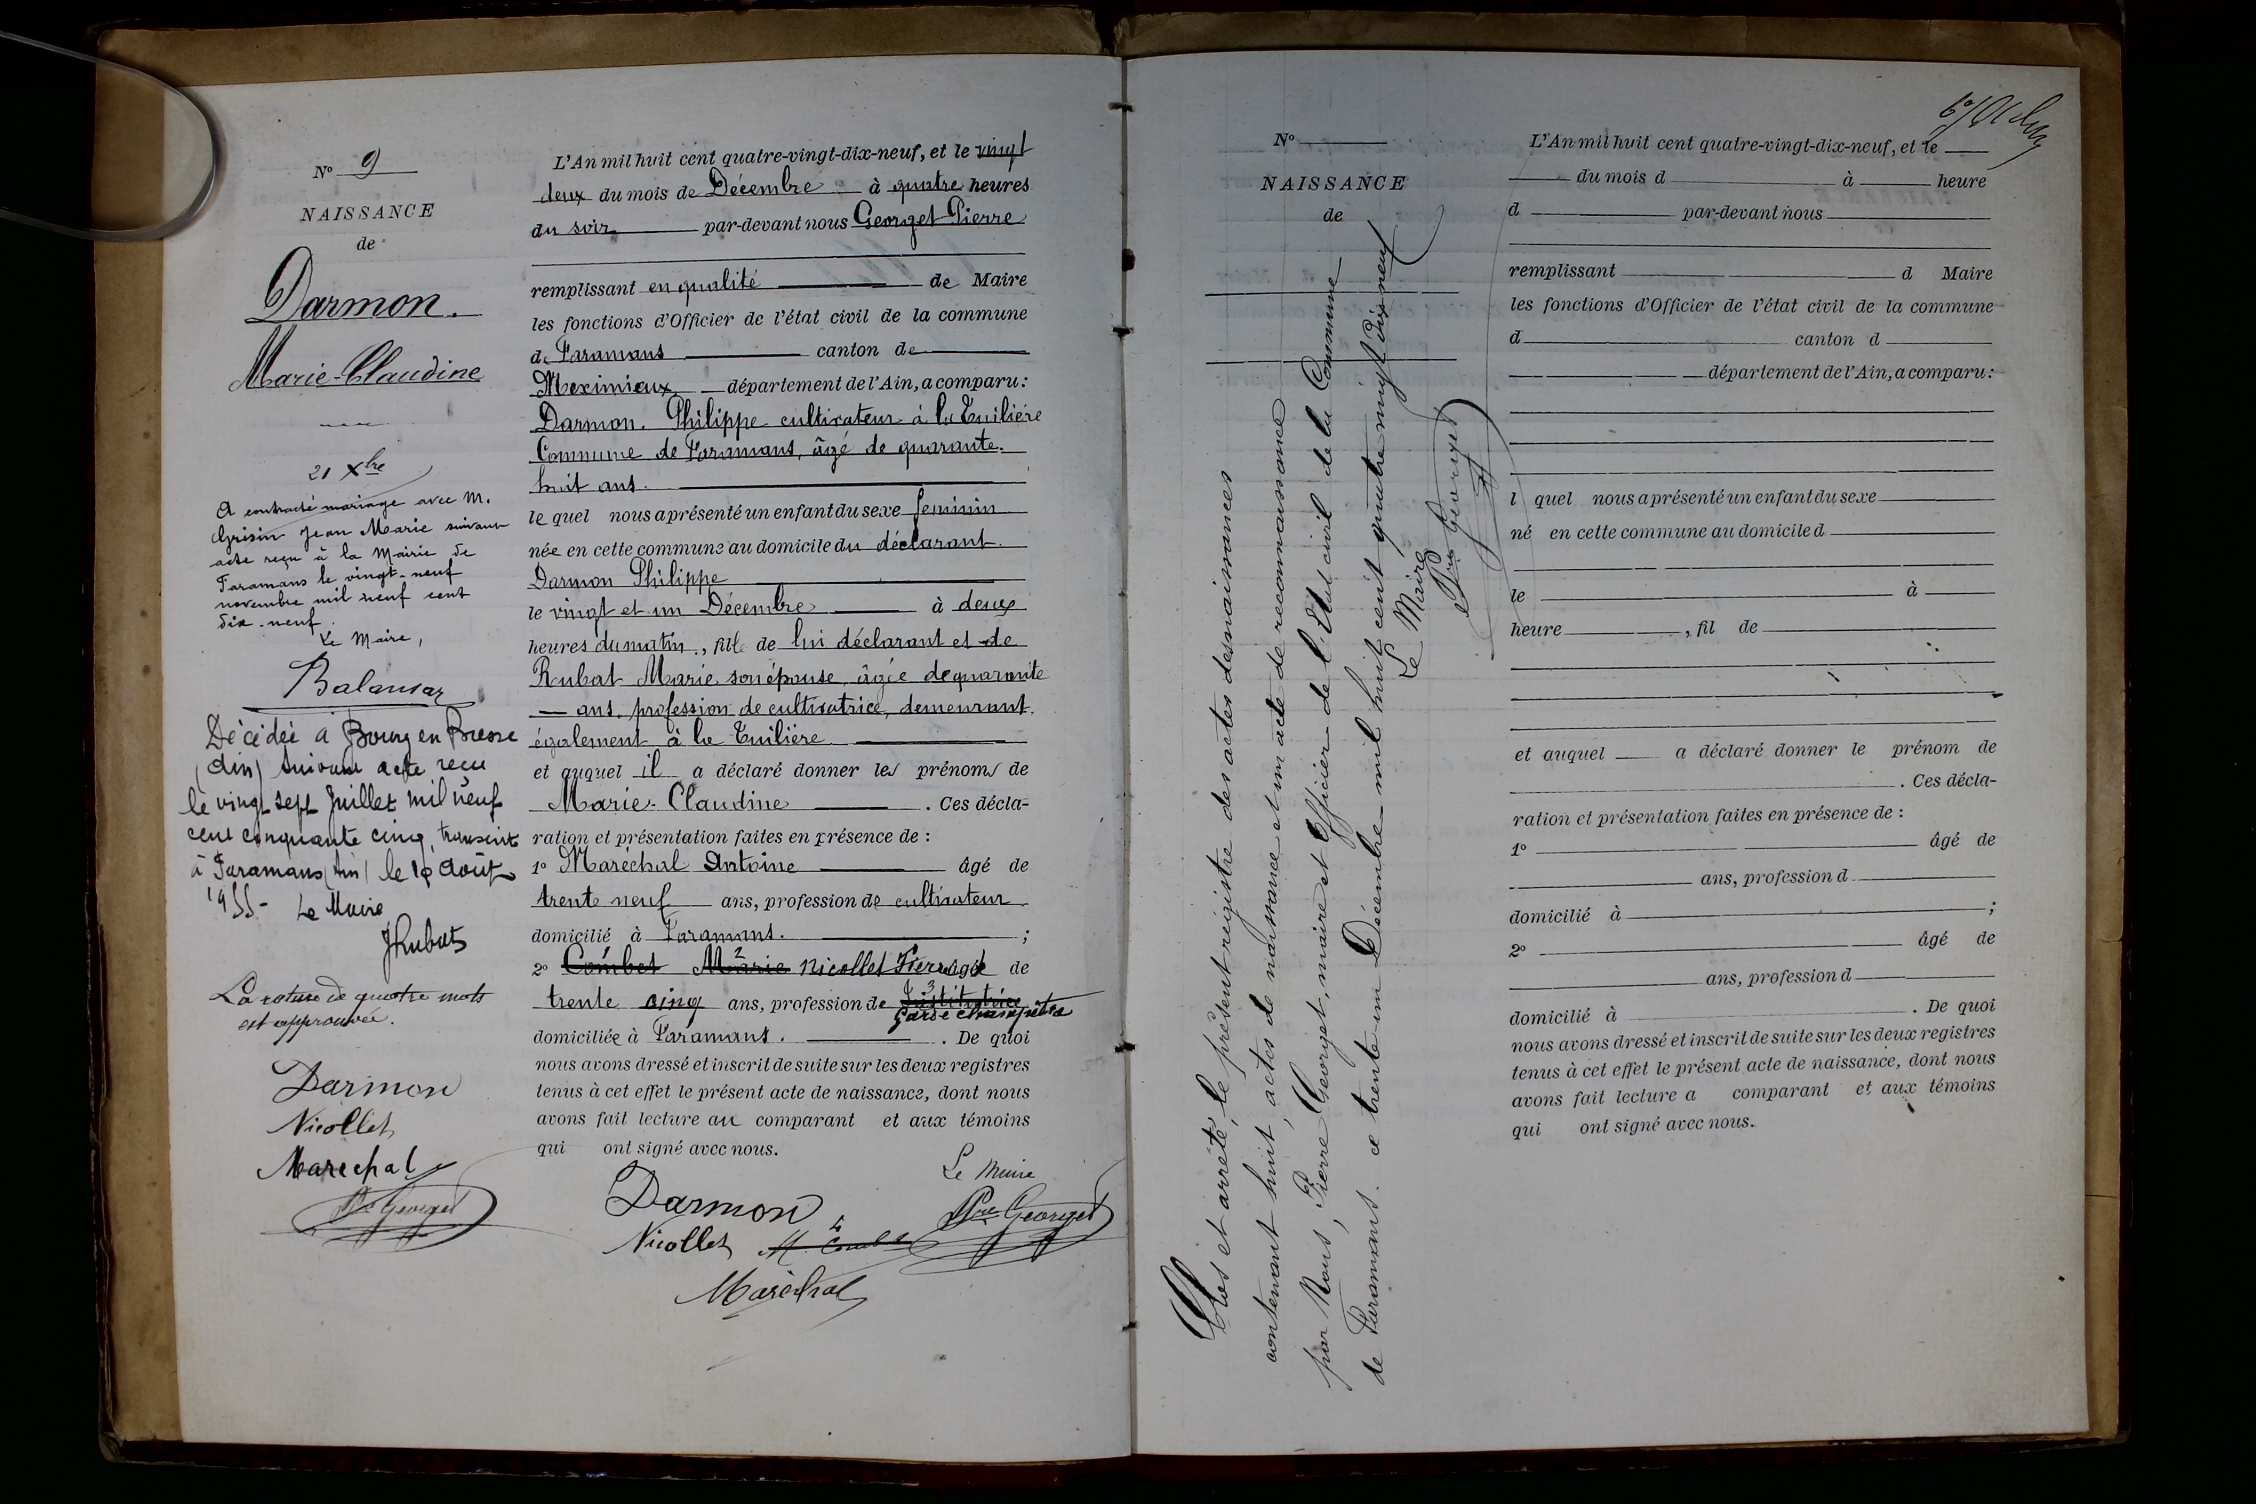 N° 9
NAISSANCE
de
Darmon.
Marie-Claudine
21 Xbre
A contracté mariage avec M.
Grisin Jean Marie suivant
acte reçu à la Mairie de
Faramans le vingt-neuf
novembre mil neuf cent
dix-neuf.
Le Maire,
Décédée à Bourg en Bresse
(Ain) suivant acte reçu
le vingt sept Juillet mil neuf
cent cinquante cinq, transcrit
à Faramans (Ain) le 10 Août
1955- Le Maire
JRubat
La rature de quatre mots
est approuvée.
Darmon
Nicollet
Marechal
Pre Georget
L'An mil huit cent quatre-vingt-dix-neuf, et le vingt
deux du mois de Décembre à quatre heures
du soir par-devant nous Georget Pierre
remplissant en qualité de Maire
les fonctions d'Officier de l'état civil de la commune
de Faramans canton de
Meximieux département de l'Ain, a comparu:
Darmon Philippe cultivateur à la Tuilière
Commune de Faramans, âgé de quarante-
huit ans.
le quel nous a présenté un enfant du sexe feminin
née en cette commune au domicile du déclarant
Darmon Philippe
le vingt et un Décembre à deux
heures du matin, fille de lui déclarant et de
Rubat Marie son épouse, âgée de quarante
ans, profession de cultivatrice, demeurant
également à la Tuilière
et auquel il a déclaré donner les prénoms de
Marie-Claudine . Ces décla-
ration et présentation faites en présence de :
1° Maréchal Antoine âgé de
trente neuf ans, profession de cultivateur
domicilié à Faramans. ;
2° Combet Marie Nicollet Pierre âgé de
trente cinq ans, profession de Institutrice
garde champêtre
domiciliée à Faramans. . De quoi
nous avons dressé et inscrit de suite sur les deux registres
tenus à cet effet le présent acte de naissance, dont nous
avons fait lecture au comparant et aux témoins
qui ont signé avec nous.
Le Maire
Darmon
Pre Georget
Nicollet M Combet
Maréchal
N°
NAISSANCE
de
Clos et arrêté, le présent régistre des actes des naissances
contenant huit, actes de naissance et un acte de reconnaissance
par Nous, Pierre Georget, maire et Officier de l'Etat civil de la Commune
de Faramans. ce trente un Décembre mil huit cent quatre vingt dix neuf
Le Maire
Pre Georget
L'An mil huit cent quatre-vingt-dix-neuf, et le
du mois d à heure
d par-devant nous
remplissant d Maire
les fonctions d'Officier de l'état civil de la commune
d canton d
département de l'Ain, a comparu:
l quel nous a présenté un enfant du sexe
né en cette commune au domicile d
le à
heure , fil de
et auquel a déclaré donner le prénom de
. Ces décla-
ration et présentation faites en présence de :
1° âgé de
ans, profession d
domicilié à ;
2° âgé de
ans, profession d
domicilié à . De quoi
nous avons dressé et inscrit de suite sur les deux registres
tenus à cet effet le présent acte de naissance, dont nous
avons fait lecture a comparant et aux témoins
qui ont signé avec nous.